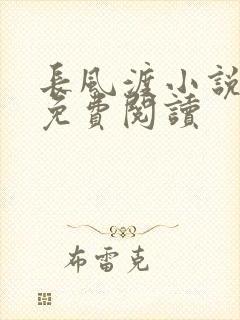 長風渡小說
免費閱讀
布雷克